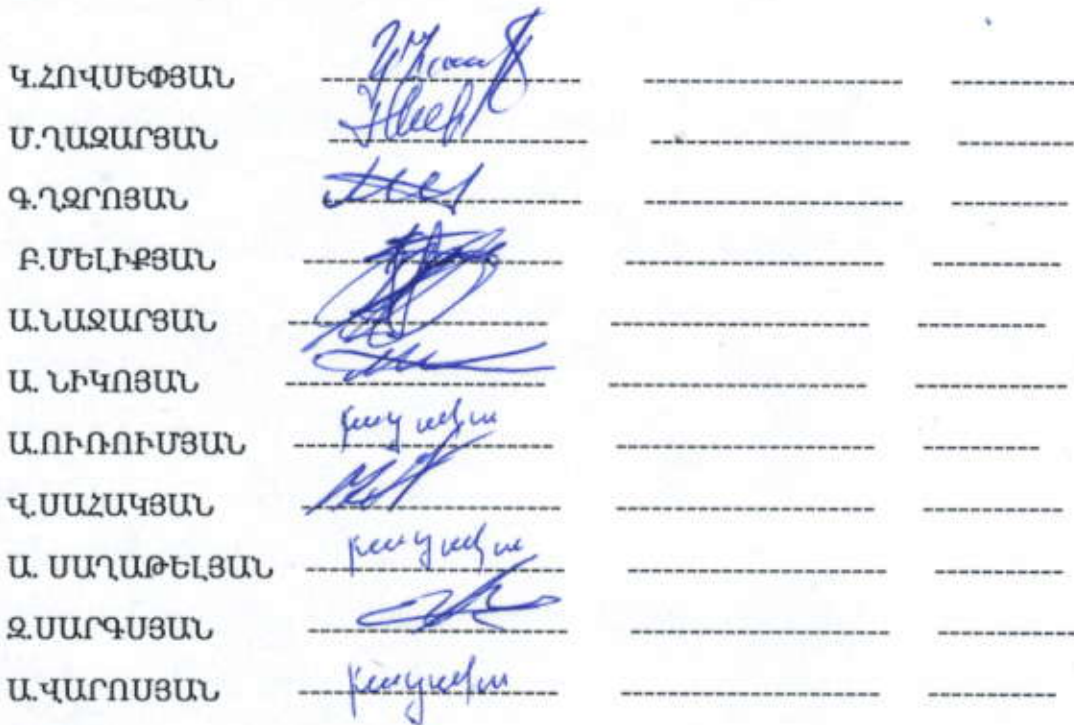 Կ.ՀՈՎՍԵՓՅԱՆ
Մ.ՂԱԶԱՐՅԱՆ
Գ.ՂԶՐՈՅԱՆ
Բ.ՄԵԼԻՔՅԱՆ
Ա.ՆԱԶԱՐՅԱՆ
Ա. ՆԻԿՈՅԱՆ
Ա.ՈԻՌՈԻՄՅԱՆ բացակա
Վ.ՍԱՀԱԿՅԱՆ
Ա. ՍԱՂԱԹԵԼՅԱՆ բացակա
Զ.ՍԱՐԳՍՅԱՆ
Ա.ՎԱՐՈՍՅԱՆ բացակա